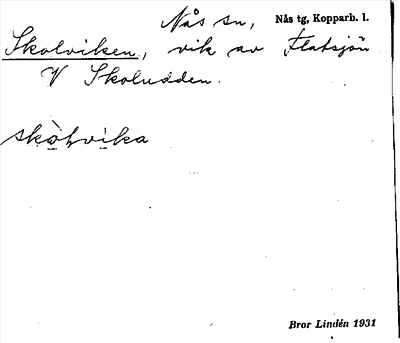 Nås sn, Nås tg, Kopparb. l.
Skolviken, vik av Flatsjön
V Skoludden.
skò̲lvi̲ka
Bror Lindén 1931